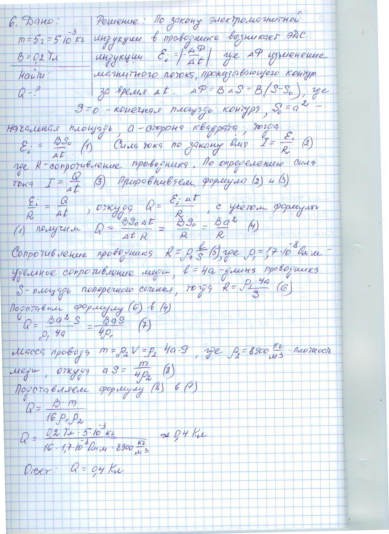 6. Дано: Решение: По закону электромагнитной
m=5г=5·10⁻³кг индукции в проводнике возникает ЭДС
B=0,2Тл индукции Ei=|ΔФ/Δt| где ΔФ изменение
Найти магнитного потока, пронизывающего контур
Q-? за время Δt. ΔФ=BΔS=B(S-S₀), где
S=0 - конечная площадь контура, S₀=a² -
начальная площадь, a - сторона квадрата, тогда
Ei = BS₀/Δt (1) Сила тока по закону Ома I = Ei/R (2)
где R-сопротивление проводника. По определению сила
тока I = Q/Δt (3) Приравниваем формулы (2) и (3)
Ei/R = Q/Δt, откуда Q = Ei Δt/R, с учетом формулы
(1) получим Q = BS₀Δt/Δt R = BS₀/R = Ba²/R (4)
Сопротивление проводника R=ρ₁ℓ/S (5) где ρ₁=1,7·10⁻⁸Ом·м -
удельное сопротивление меди, ℓ=4a - длина проводника
S-площадь поперечного сечения, тогда R=ρ₁4a/S (6)
Подставим формулу (6) в (4)
Q = Ba²S/ρ₁4a = BaS/4ρ₁ (7)
Масса провода m=ρ₂V=ρ₂4a·S, где ρ₂=8900 кг/м³ плотность
меди, откуда aS = m/4ρ₂ (8)
Подставляем формулу (8) в (7)
Q = B·m/16ρ₁ρ₂
Q = 0,2Тл·5·10⁻³кг/16·1,7·10⁻⁸Ом·м·8900 кг/м³ ≈ 0,4Кл
Ответ: Q=0,4Кл